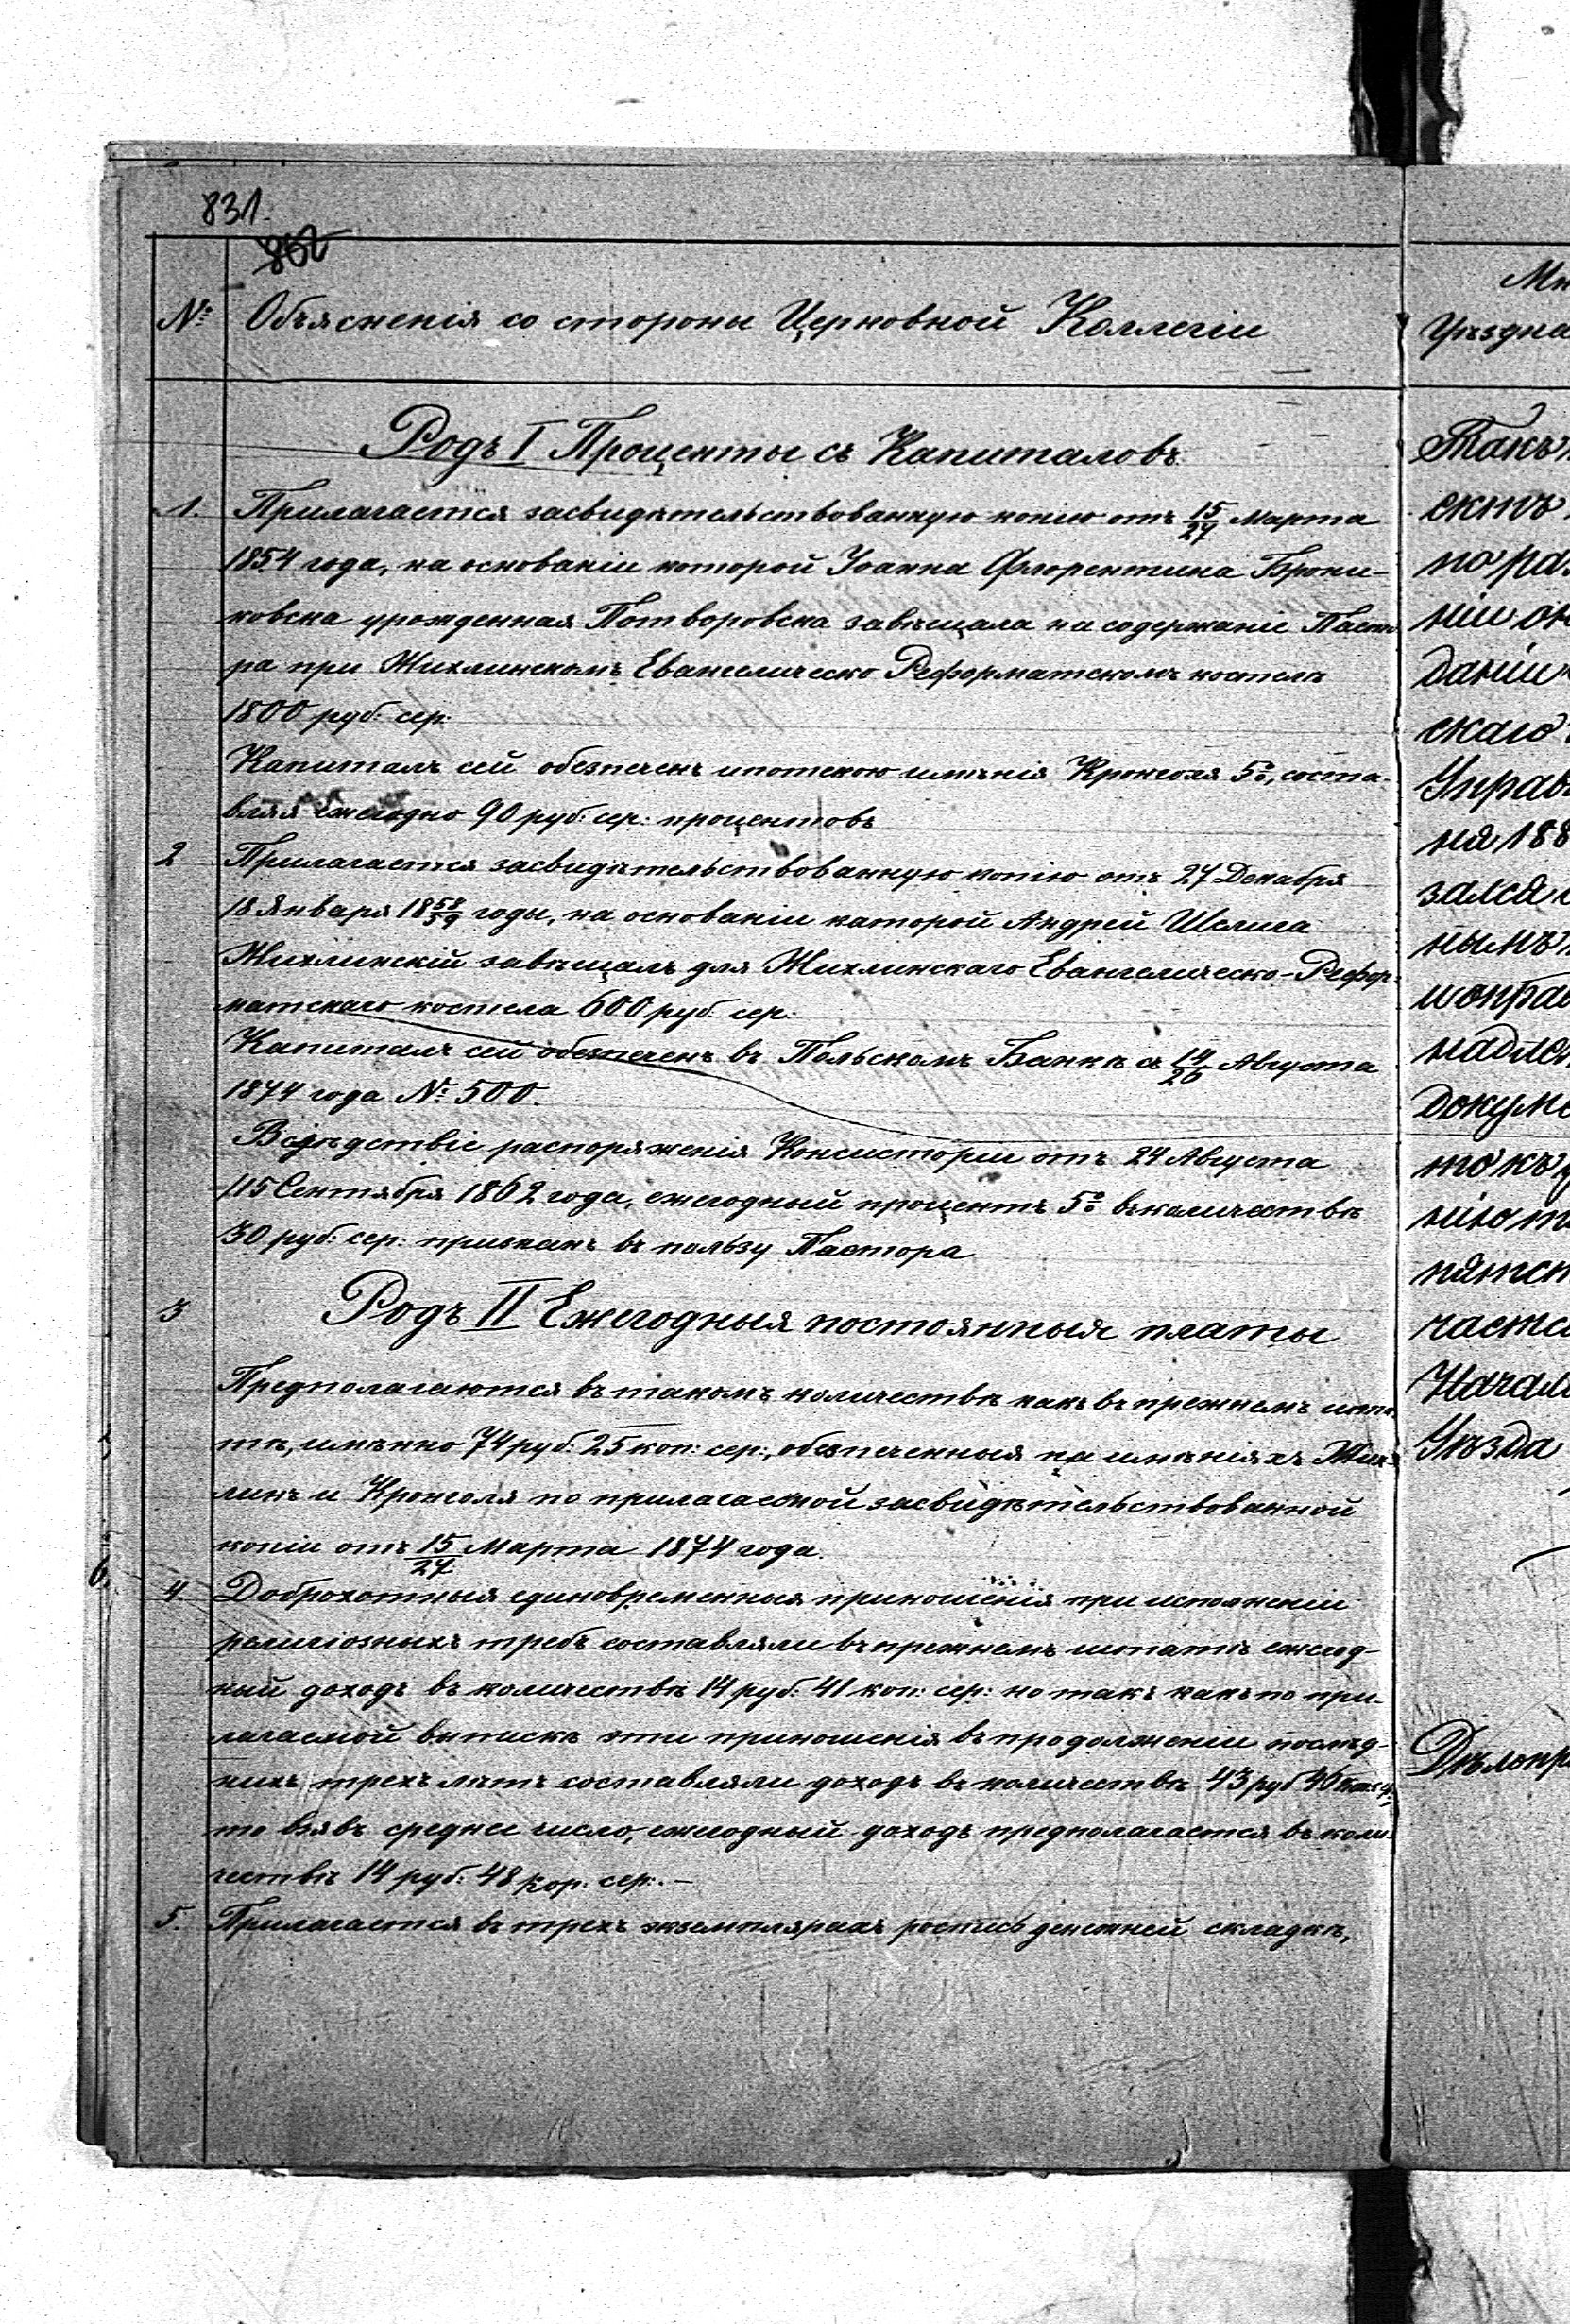 831.
862
№ Объясненія со стороны Церковной Коллегіи
Родъ I Проценты съ Капиталовъ
1. Прилагается засвидѣтельствованную копію отъ 15/27 Марта
1854 года, на основаніи которой Іоанна Флорентина Брони-
ковска урожденная Потворовска завѣщала на содержаніе Пасто
ра при Жихлинскомъ Евангелическо Реформатскомъ костелѣ
1800 руб: сер:
Капиталъ сей обезпеченъ ипотекою имѣнія Кронголя 5%, соста-
вляя ежегодно 90 руб: сер: процентовъ
2 Прилагается засвидѣтельствованную копію отъ 27 Декабря
18 Января 18 58/59 годы, на основаніи которой Андрей Шелига
Жихлинскій завѣщалъ для Жихлинскаго Евангелическо-Рефор-
матскаго костела 600 руб: сер:
Капиталъ сей обезпеченъ въ Польскомъ Банкѣ съ 14/26 Августа
1874 года № 500.
Вслѣдствіе распоряженія Консисторіи отъ 24 Августа
/15 Сентября 1862 года, ежегодный процентъ 5% въ количествѣ
30 руб: сер: признанъ въ пользу Пастора
3 Родъ II Ежегодныя постоянныя платы
Предполагаются въ такомъ количествѣ какъ въ прежнемъ шта-
тѣ, имѣнно 74 руб: 25 коп: сер:, обезпеченныя на имѣніяхъ Жих-
линъ и Кронголя по прилагаемой засвидѣтельствованной
копіи отъ 15/27 Марта 1874 года.
4. Доброхотныя единовременныя приношенія при исполненіи
религіозныхъ требъ составляли въ прежнемъ штатѣ ежегод-
ный доходъ въ количествѣ 14 руб: 41 коп: сер: но такъ какъ по при-
лагаемой выпискѣ эти приношенія въ продолженіи послѣд-
нихъ трехъ лѣтъ составляли доходъ въ количествѣ 43 руб 46 коп:
то взявъ среднее число, ежегодный доходъ предполагается въ коли-
чествѣ 14 руб: 48 кор: сер:. –
5. Прилагается въ трехъ экземплярахъ роспись денежней складкѣ,
Мн
Уѣздна
Такъ
ектъ
по раз
ніи он
даніи
скаго
Управ
ня 188
зался
нымъ
надле
докуме
то къ
нію
пятст
частс
Начал
Уѣзда
Дѣлопр